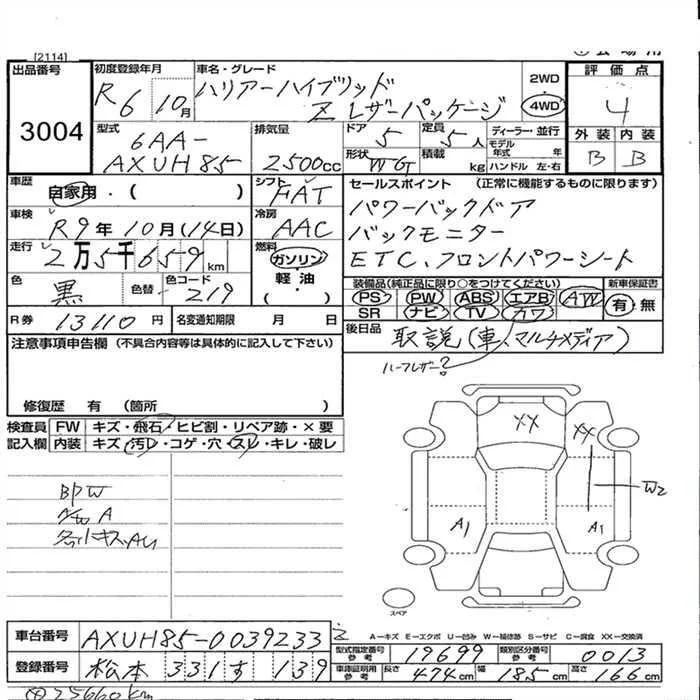 [2114]
出品番号
3004
初度登録年月
R6 10月
車名・グレード
ハリアーハイブリッド
Z レザーパッケージ
2WD
4WD
評価点
4
外装 内装
B B
型式
6AA-
AXUH85
排気量
2500cc
ドア
5
定員
5人
形状
WGT
積載
kg
ディーラー・並行
モデル
年式 年
ハンドル 左・右
車歴
自家用・( )
シフト
FAT
車検
R9年10月(14日)
冷房
AAC
走行
2万5千659km
燃料
ガソリン
軽油
色
黒
色替
色コード
219
R券
13110円
名変通知期限 月 日
セールスポイント (正常に機能するものに限ります)
パワーバックドア
バックモニター
ETC、フロントパワーシート
装備品(純正品に限り○をつけてください)
PS PW ABS エアB AW
SR ナビ TV カワ
新車保証書
有・無
後日品
取説(車、マルチメディア)
ハーフレザー?
注意事項申告欄(不具合内容等は具体的に記入して下さい)
修復歴 有 (箇所 )
検査員
記入欄
FW キズ・飛石・ヒビ割・リペア跡・×要
内装 キズ・汚レ・コゲ・穴・スレ・キレ・破レ
BPW
XX
XX
W2
A1
A1
スペア
A−キズ E−エクボ U−凹み W−補修跡 S−サビ C−腐食 XX−交換済
車台番号
AXUH85-0039233
登録番号
松本 331 す 139
型式指定番号
参考
19699
類別区分番号
参考
0013
車庫証明用
参考
長さ
474cm
幅
185cm
高さ
166cm
25660km